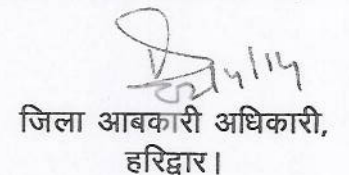 जिला आबकारी अधिकारी,
हरिद्वार।